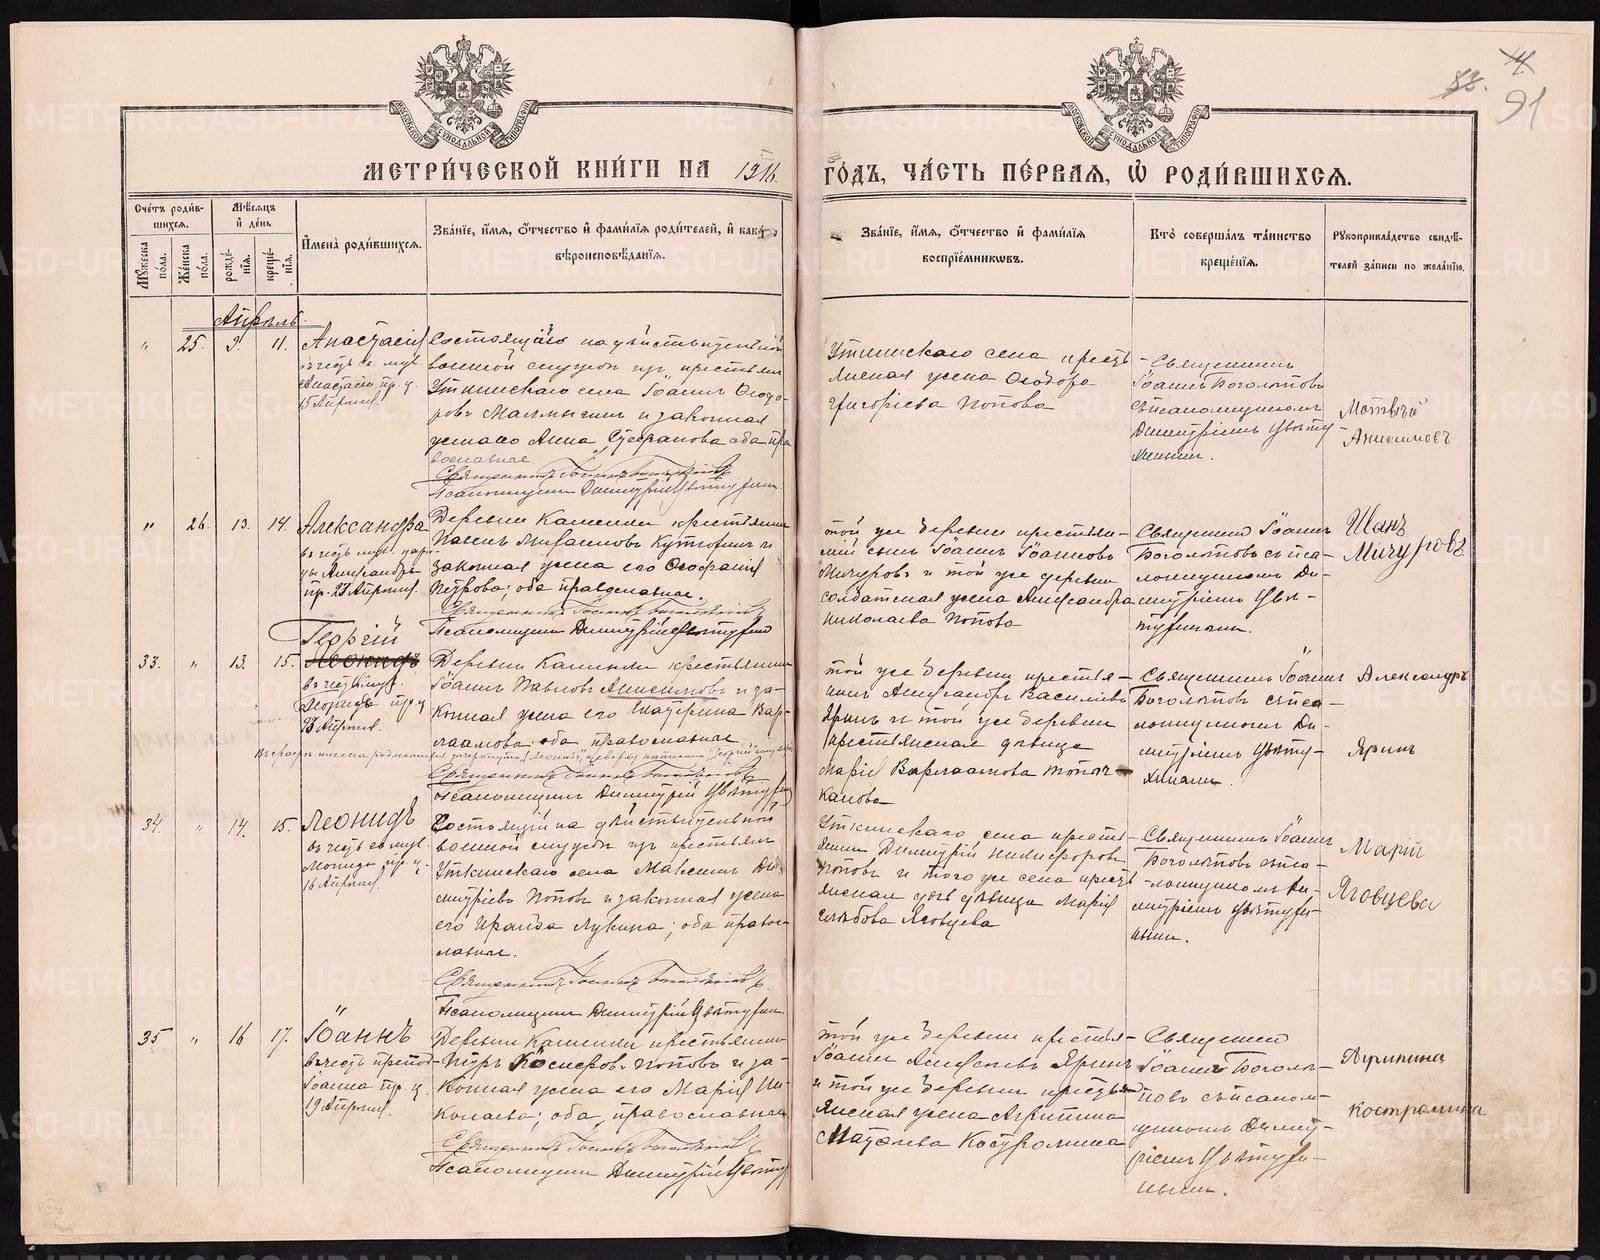 88.
91
МЕТРИ́ЧЕСКОЙ КНИ́ГИ НА 1916 ГО́ДЪ, ЧА́СТЬ ПЕ́РВАЯ, Ѡ҆ РОДИ́ВШИХСЯ.
Сче́тъ роди́вшихся.
Мѣ́сяцъ и҆ де́нь
И҆мена̀ роди́вшихся.
Зва́нїе, и҆́мя, ѻ҆́тчество и҆ фами́лїя роди́телей, и҆ како́го
вѣроисповѣ́данїя.
Зва́нїе, и҆́мя, ѻ҆́тчество и҆ фами́лїя
воспрїе́мниковъ.
Кто̀ соверша́лъ та́инство
креще́нїя.
Рꙋкоприкла́дство свидѣ́-
телей за́писи по жела́нїю.
Мꙋ́жеска по́ла.
Же́нска по́ла.
рожде́-
нїя.
креще́-
нїя.
Апрѣль.
" 25. 9. 11. Анастасія
въ честь св. муч.
Анастасіи, пр. ц.
15 Апрѣля.
Состоящаго на дѣйствительной
военной службѣ изъ крестьянъ
Уткинскаго села Іоаннъ Ѳеодо-
ровъ Малмыгинъ и законная
жена его Анна Стефанова оба пра
вославные
Священникъ Іоаннъ Боголѣповъ
Псаломщикъ Димитрій Цвѣтухинъ
Уткинскаго села кресть-
янская жена Ѳеодора
Григоріева Попова
Священникъ
Іоаннъ Боголѣповъ
съ псаломщикомъ
Димитріемъ Цвѣту-
хинымъ.
Матвѣй
Анисимовъ
" 26. 13. 14. Александра
въ честь муч. цари-
цы Александры
пр. 23 Апрѣля.
Деревни Каменки крестьянинъ
законная жена его Ѳеофанія
Петрова; оба православные.
Священникъ Іоаннъ Боголѣповъ
Псаломщикъ Димитрій Цвѣтухинъ
той же деревни крестьян-
скій сынъ Іоаннъ Іоанновъ
Мичуровъ и той же деревни
солдатская жена Александра
Николаева Попова
Священникъ Іоаннъ
Боголѣповъ съ пса-
ломщикомъ Ди-
митріемъ Цвѣ-
тухинымъ.
Иванъ
Мичуровъ
Георгій
33. " 13. 15. Леонидъ
въ честь муч.
Леонида пр. ц.
Деревни Каменки крестьянинъ
Іоаннъ Павловъ Анисимовъ и за-
конная жена его Екатерина Вар-
лаамова; оба православные
Священникъ Іоаннъ Боголѣповъ
Псаломщикъ Димитрій Цвѣтухинъ
той же деревни крестья-
нинъ Александръ Василіевъ
Яринъ и той же деревни
крестьянская дѣвица
Марія Варлаамова Толма-
Священникъ Іоаннъ
Боголѣповъ съ пса-
ломщикомъ Ди-
митріемъ Цвѣту-
хинымъ.
Александръ
Яринъ
34. " 14. 15. Леонидъ
въ честь св. муч.
Леонида пр. ц.
16 Апрѣля.
Состоящій на дѣйствительной
военной службѣ изъ крестьянъ
Уткинскаго села Максимъ Ди-
митріевъ Поповъ и законная жена
его Ираида Лукина; оба право-
славные.
Священникъ Іоаннъ Боголѣповъ
Псаломщикъ Димитрій Цвѣтухинъ
Уткинскаго села кресть-
янинъ Димитрій Никифоровъ
Поповъ и того же села кресть-
янская дѣвица Марія
Глѣбова Яговцева
Священникъ Іоаннъ
Боголѣповъ съ пса-
ломщикомъ Ди-
митріемъ Цвѣтухи-
нымъ.
Марій
Яговцева
35 " 16 17. Іоаннъ
въ честь препод.
Іоанна пр. ц.
19 Апрѣля.
Деревни Каменки крестьянинъ
Поповъ и за-
конная жена его Марія Ни-
колаева; оба православные
Священникъ Іоаннъ Боголѣповъ
Псаломщикъ Димитрій Цвѣтух
той же деревни крестья-
Іоаннъ Алексѣевъ Яринъ
и той же деревни кресть-
янская жена Агрипина
Матѳеева Костромина
Священникъ
Іоаннъ Боголѣ-
повъ съ псалом-
щикомъ Димит-
ріемъ Цвѣтухи-
нымъ.
Агрипина
Костромина